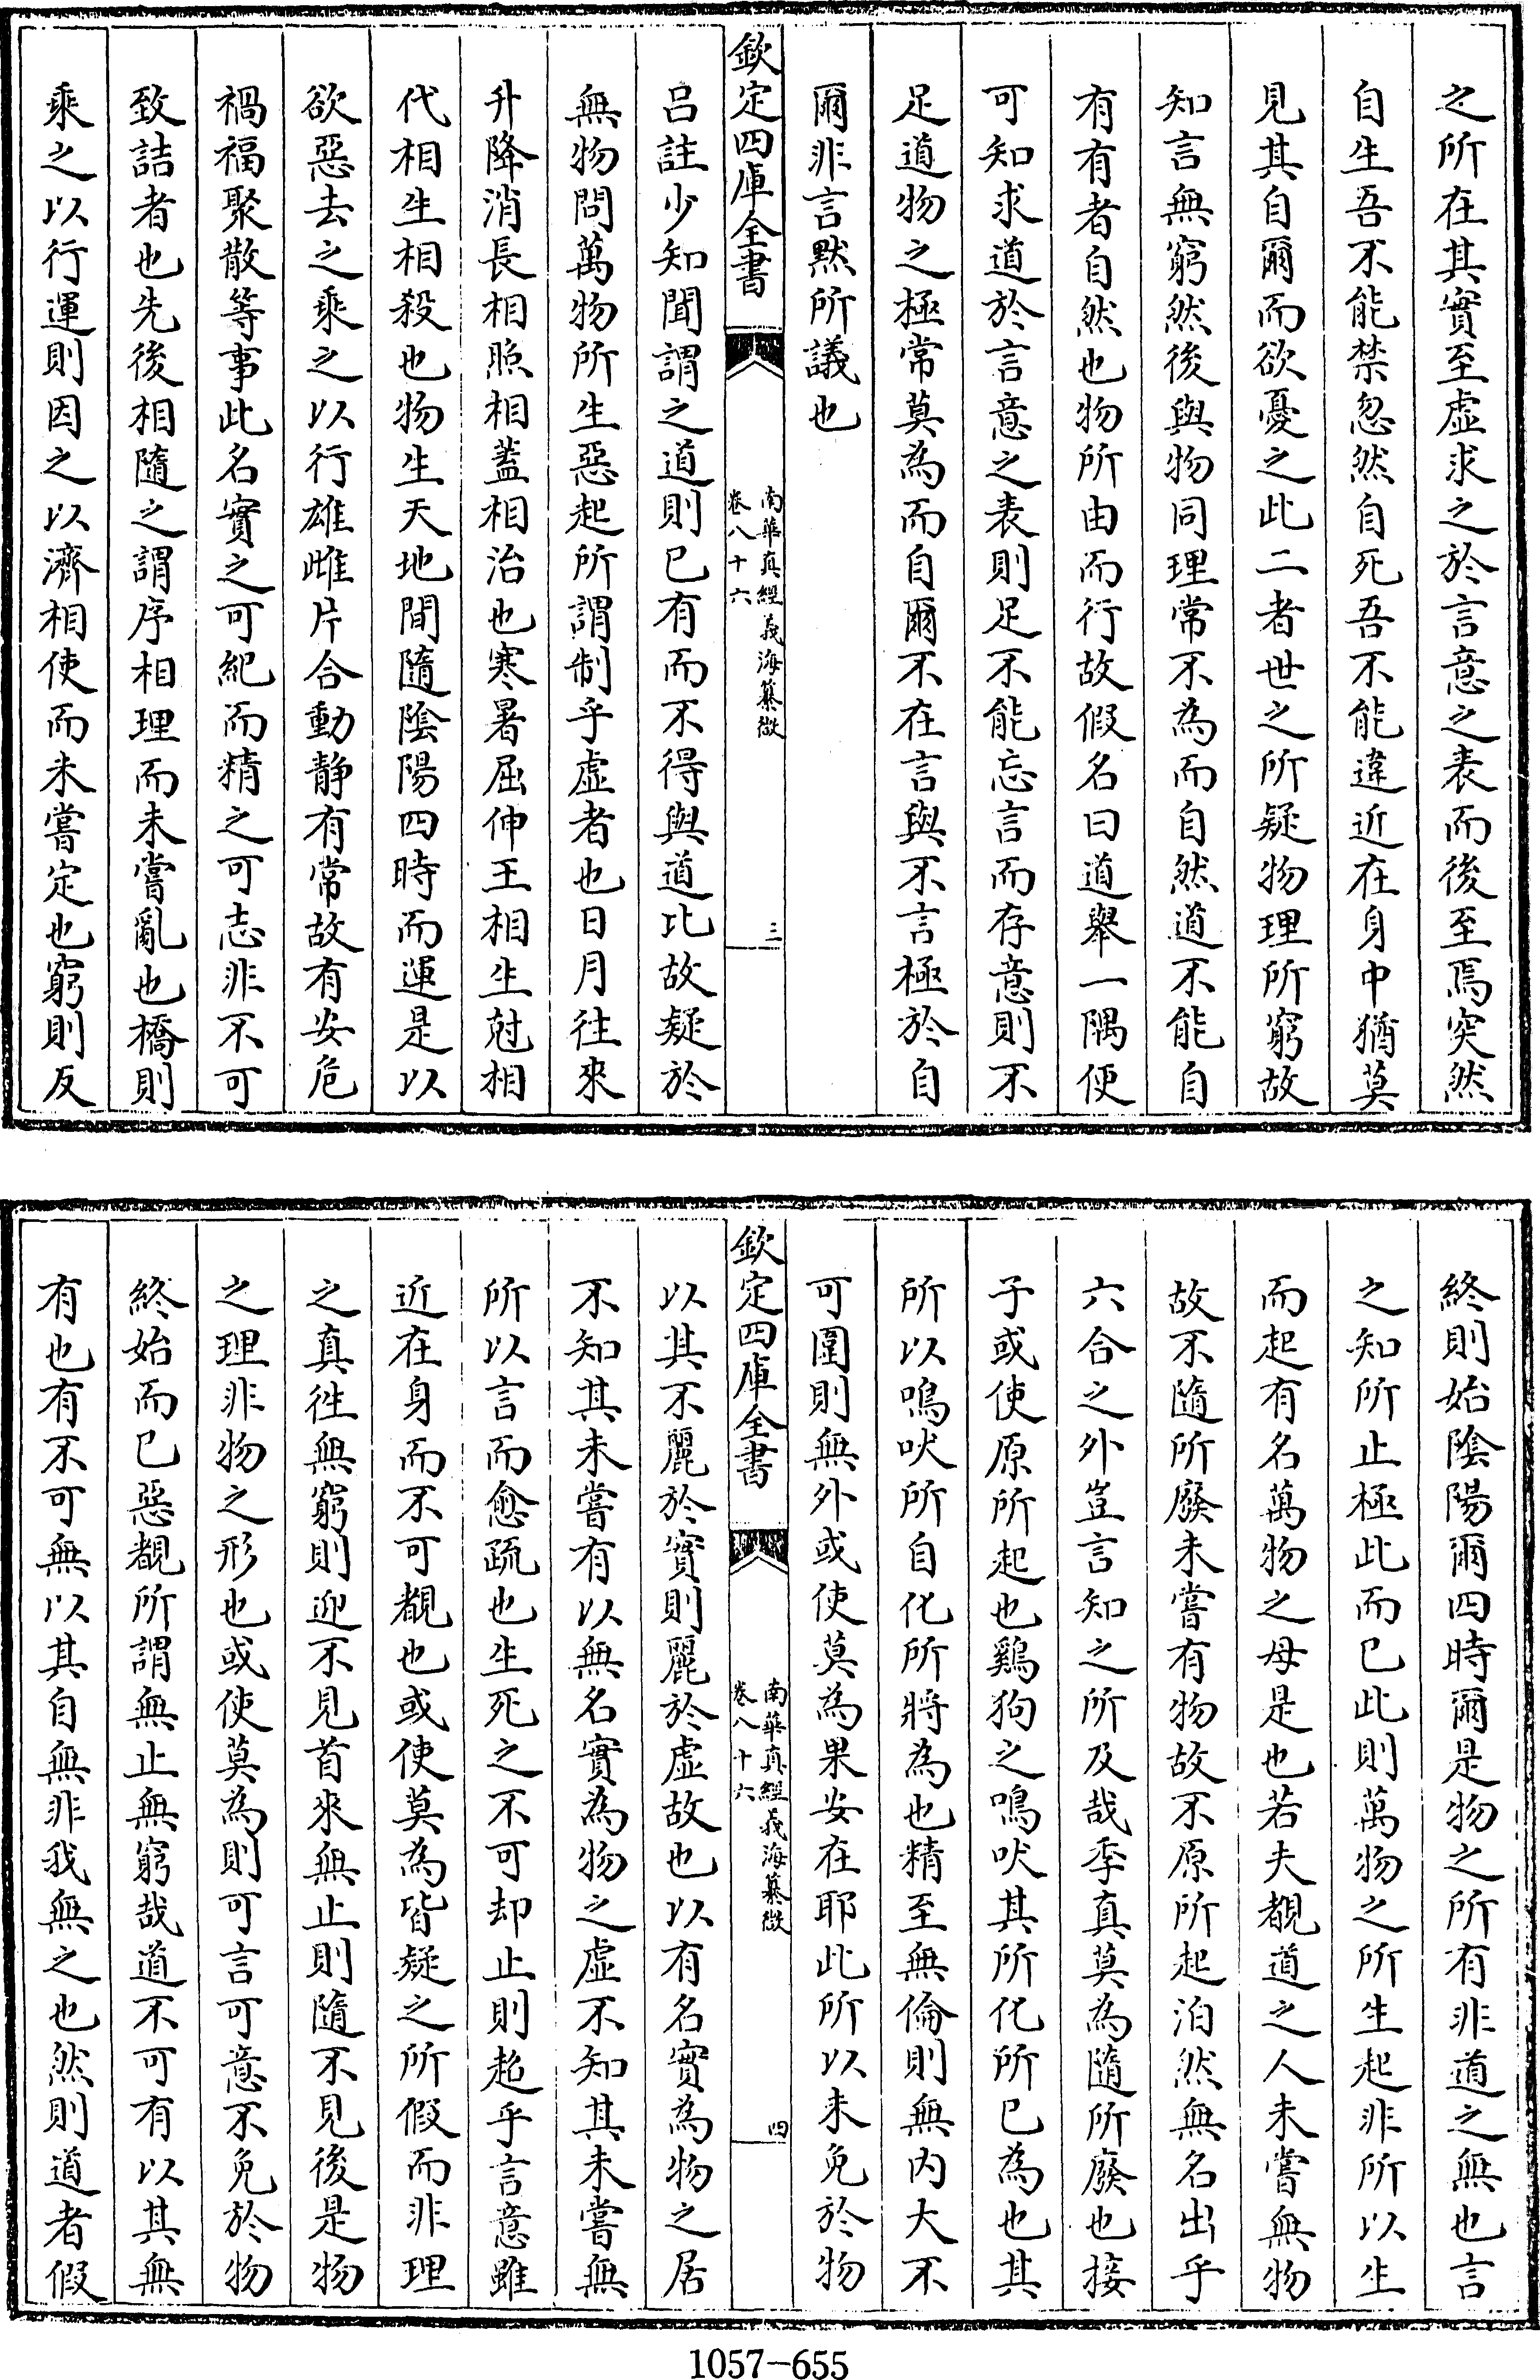 之所在其實至虛求之於言意之表而後至焉突然
自生吾不能禁忽然自死吾不能違近在身中猶莫
見其自爾而欲憂之此二者世之所疑物理所窮故
知言無窮然後與物同理常不為而自然道不能自
有有者自然也物所由而行故假名曰道舉一隅便
可知求道於言意之表則足不能忘言而存意則不
足道物之極常莫為而自爾不在言與不言極於自
爾非言默所議也
欽定四庫全書
南華真經義海纂微
卷八十六
三
呂註少知聞謂之道則已有而不得與道比故疑於
無物問萬物所生惡起所謂制乎虛者也日月往來
升降消長相照相蓋相治也寒暑屈伸王相生尅相
代相生相殺也物生天地間隨陰陽四時而運是以
欲惡去之乘之以行雄雌片合動靜有常故有安危
禍福聚散等事此名實之可紀而精之可志非不可
致詰者也先後相隨之謂序相理而未嘗亂也橋則
乘之以行運則因之以濟相使而未嘗定也窮則反
終則始陰陽爾四時爾是物之所有非道之無也言
之知所止極此而已此則萬物之所生起非所以生
而起有名萬物之母是也若夫覩道之人未嘗無物
故不隨所廢未嘗有物故不原所起泊然無名出乎
六合之外豈言知之所及哉季真莫為隨所廢也接
子或使原所起也鷄狗之鳴吠其所化所已為也其
所以鳴吠所自化所將為也精至無倫則無內大不
可圍則無外或使莫為果安在耶此所以未免於物
欽定四庫全書
南華真經義海纂微
卷八十六
四
以其不麗於實則麗於虛故也以有名實為物之居
不知其未嘗有以無名實為物之虛不知其未嘗無
所以言而愈疏也生死之不可却止則超乎言意雖
近在身而不可覩也或使莫為皆疑之所假而非理
之真徃無窮則迎不見首來無止則隨不見後是物
之理非物之形也或使莫為則可言可意不免於物
終始而已惡覩所謂無止無窮哉道不可有以其無
有也有不可無以其自無非我無之也然則道者假
1057-655